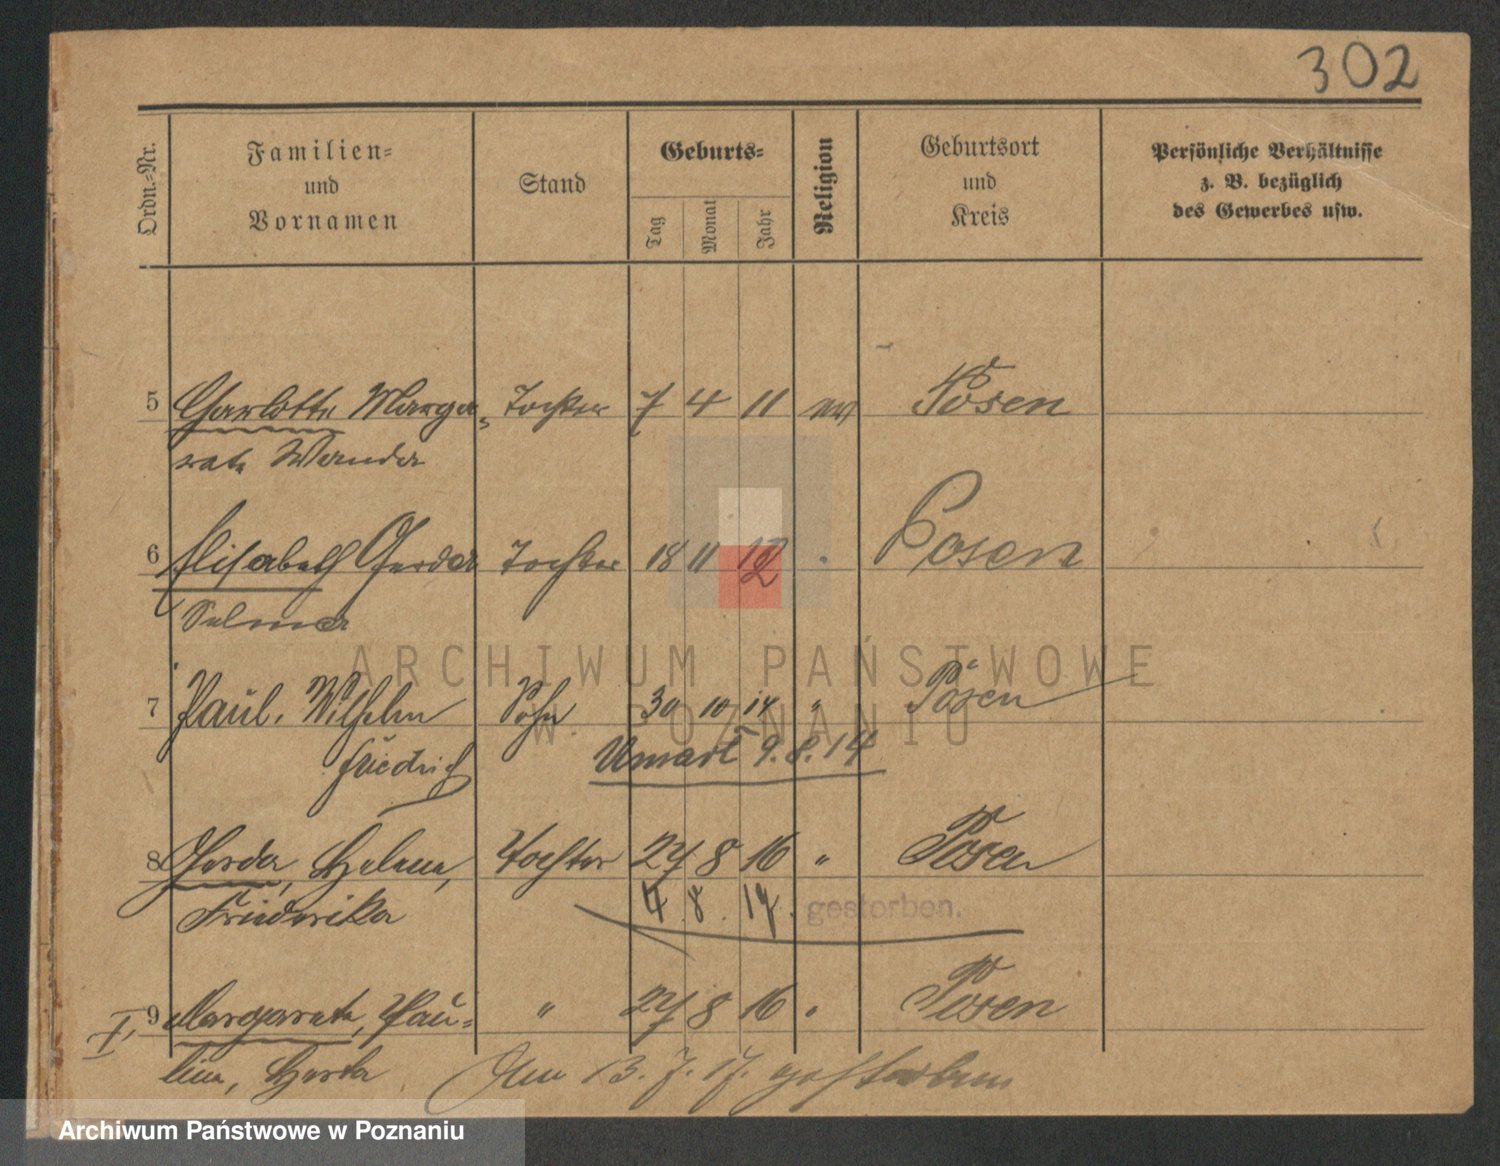 302
Ordn.-Nr.
Familien-
und
Vornamen
Stand
Geburts-
Tag
Monat
Jahr
Religion
Geburtsort
und
Kreis
Persönliche Verhältnisse
z. B. bezüglich
des Gewerbes usw.
5 Charlotte Marga- Tochter 7 4 11 ev Posen
rete Wanda
6 Elisabeth Gerda Tochter 18 11 12 " Posen
Selma
7 Paul, Wilhelm Sohn 30 10 14 " Posen
Friedrich Umarł 9.8.14
8 Gerda, Helene, Tochter 27 8 16 " Posen
Friederika 4. 8. 17. gestorben.
I, 9 Margarete, Pau- " 27 8 16 " Posen
line, Herta Am 13. 7. 17. gestorben
ARCHIWUM PAŃSTWOWE
W POZNANIU
Archiwum Państwowe w Poznaniu